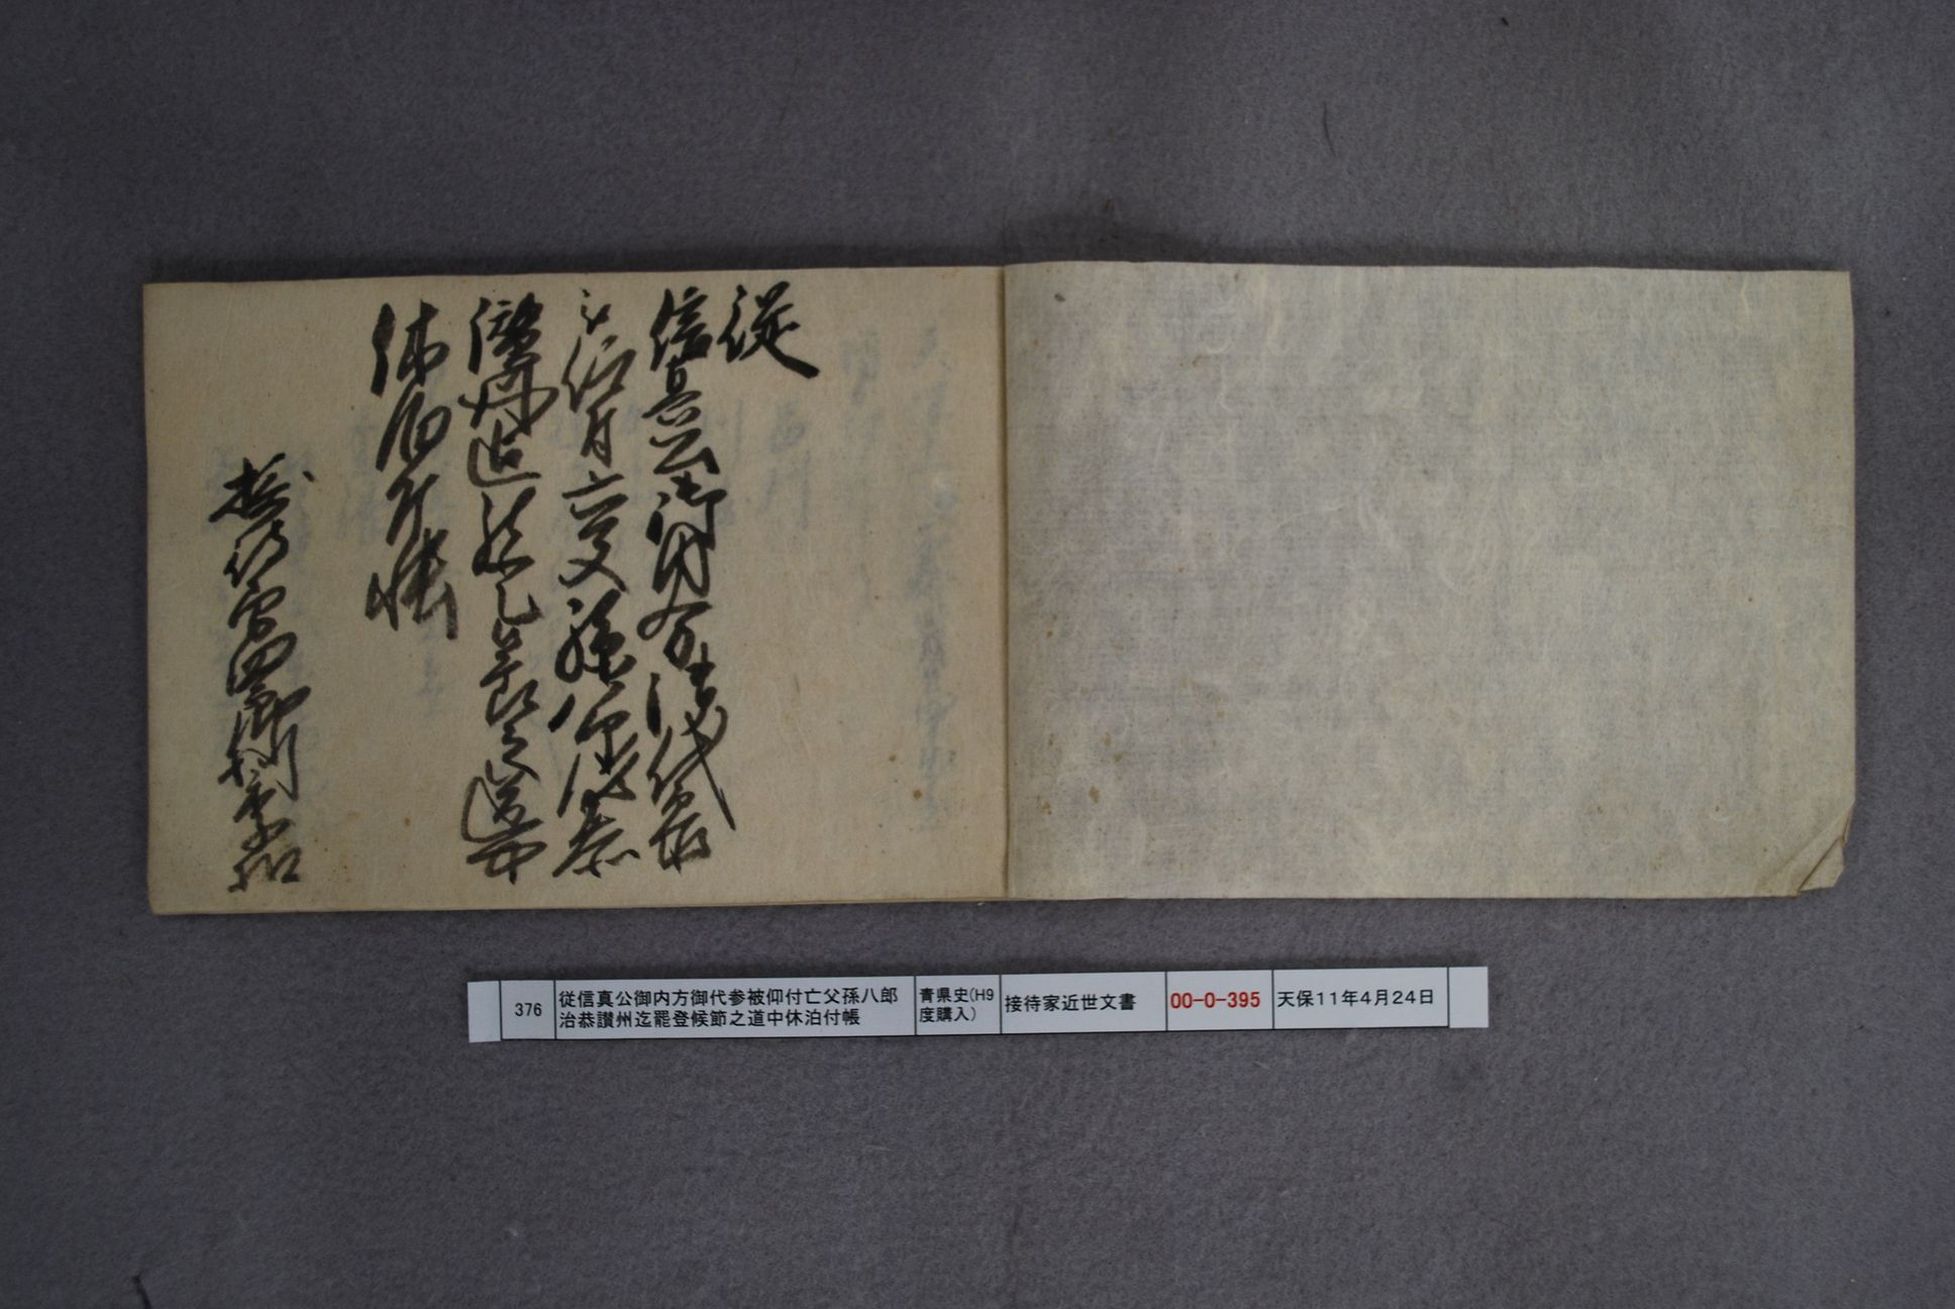 従
信真公御内方御代参
被仰付亡父孫八郎治恭
讃州迄罷登候節之道中
休泊付帳
接待宮四郎
376
従信真公御内方御代参被仰付亡父孫八郎
治恭讃州迄罷登候節之道中休泊付帳
青県史(H9
度購入)
接待家近世文書
00-0-395
天保11年4月24日